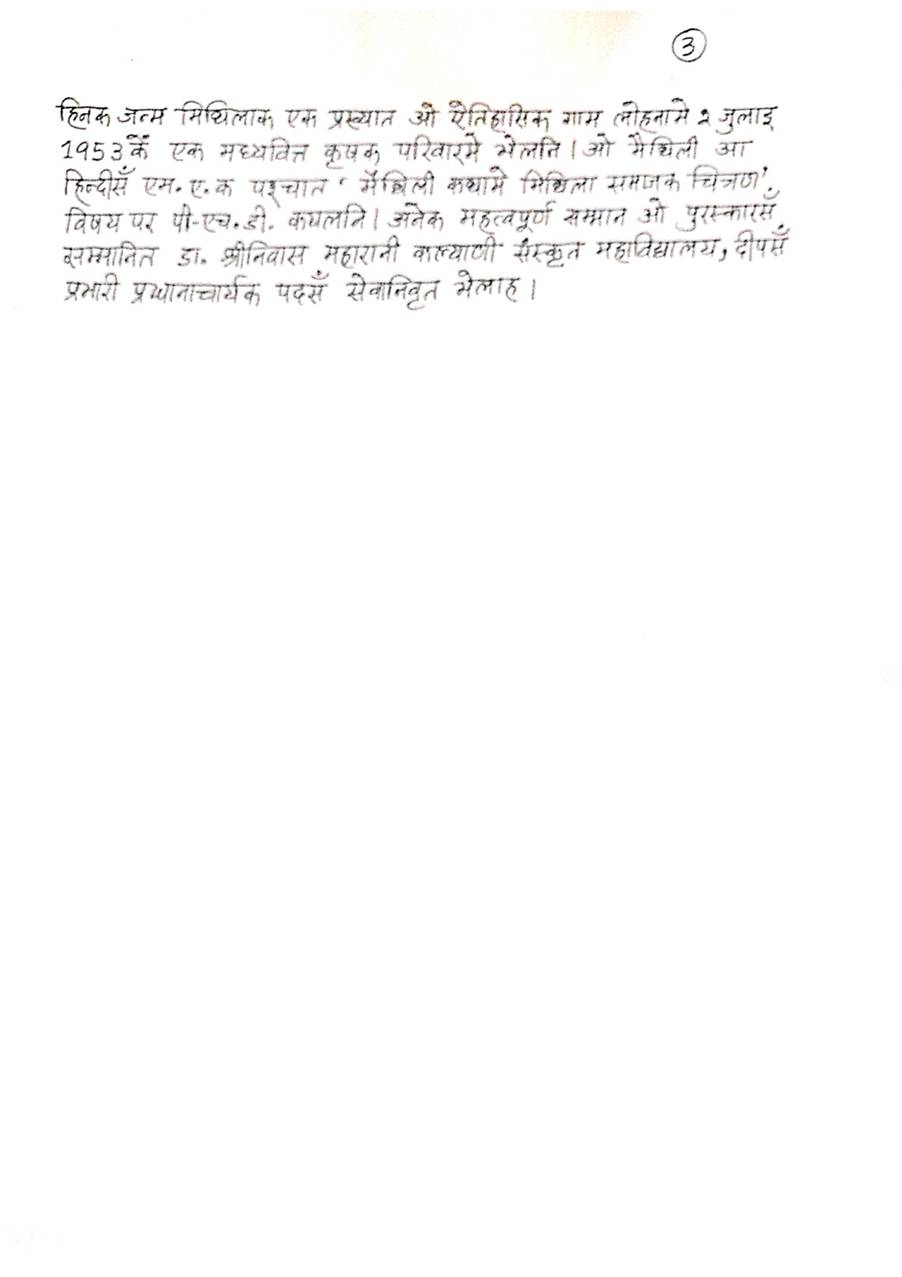 3
हिनक जन्म मिथिलाक एक प्रख्यात ओ ऐतिहासिक गाम लोहनामे २ जुलाइ
1953केँ एक मध्यवित्त कृषक परिवारमे भेलनि। ओ मैथिली आ
हिन्दीसँ एम.ए.क पश्चात 'मैथिली कथामे मिथिला समाजक चित्रण'
विषय पर पी-एच.डी. कयलनि। अनेक महत्वपूर्ण सम्मान ओ पुरस्कारसँ
सम्मानित डा. श्रीनिवास महारानी कल्याणी संस्कृत महाविद्यालय, दीपसँ
प्रभारी प्रधानाचार्यक पदसँ सेवानिवृत भेलाह।